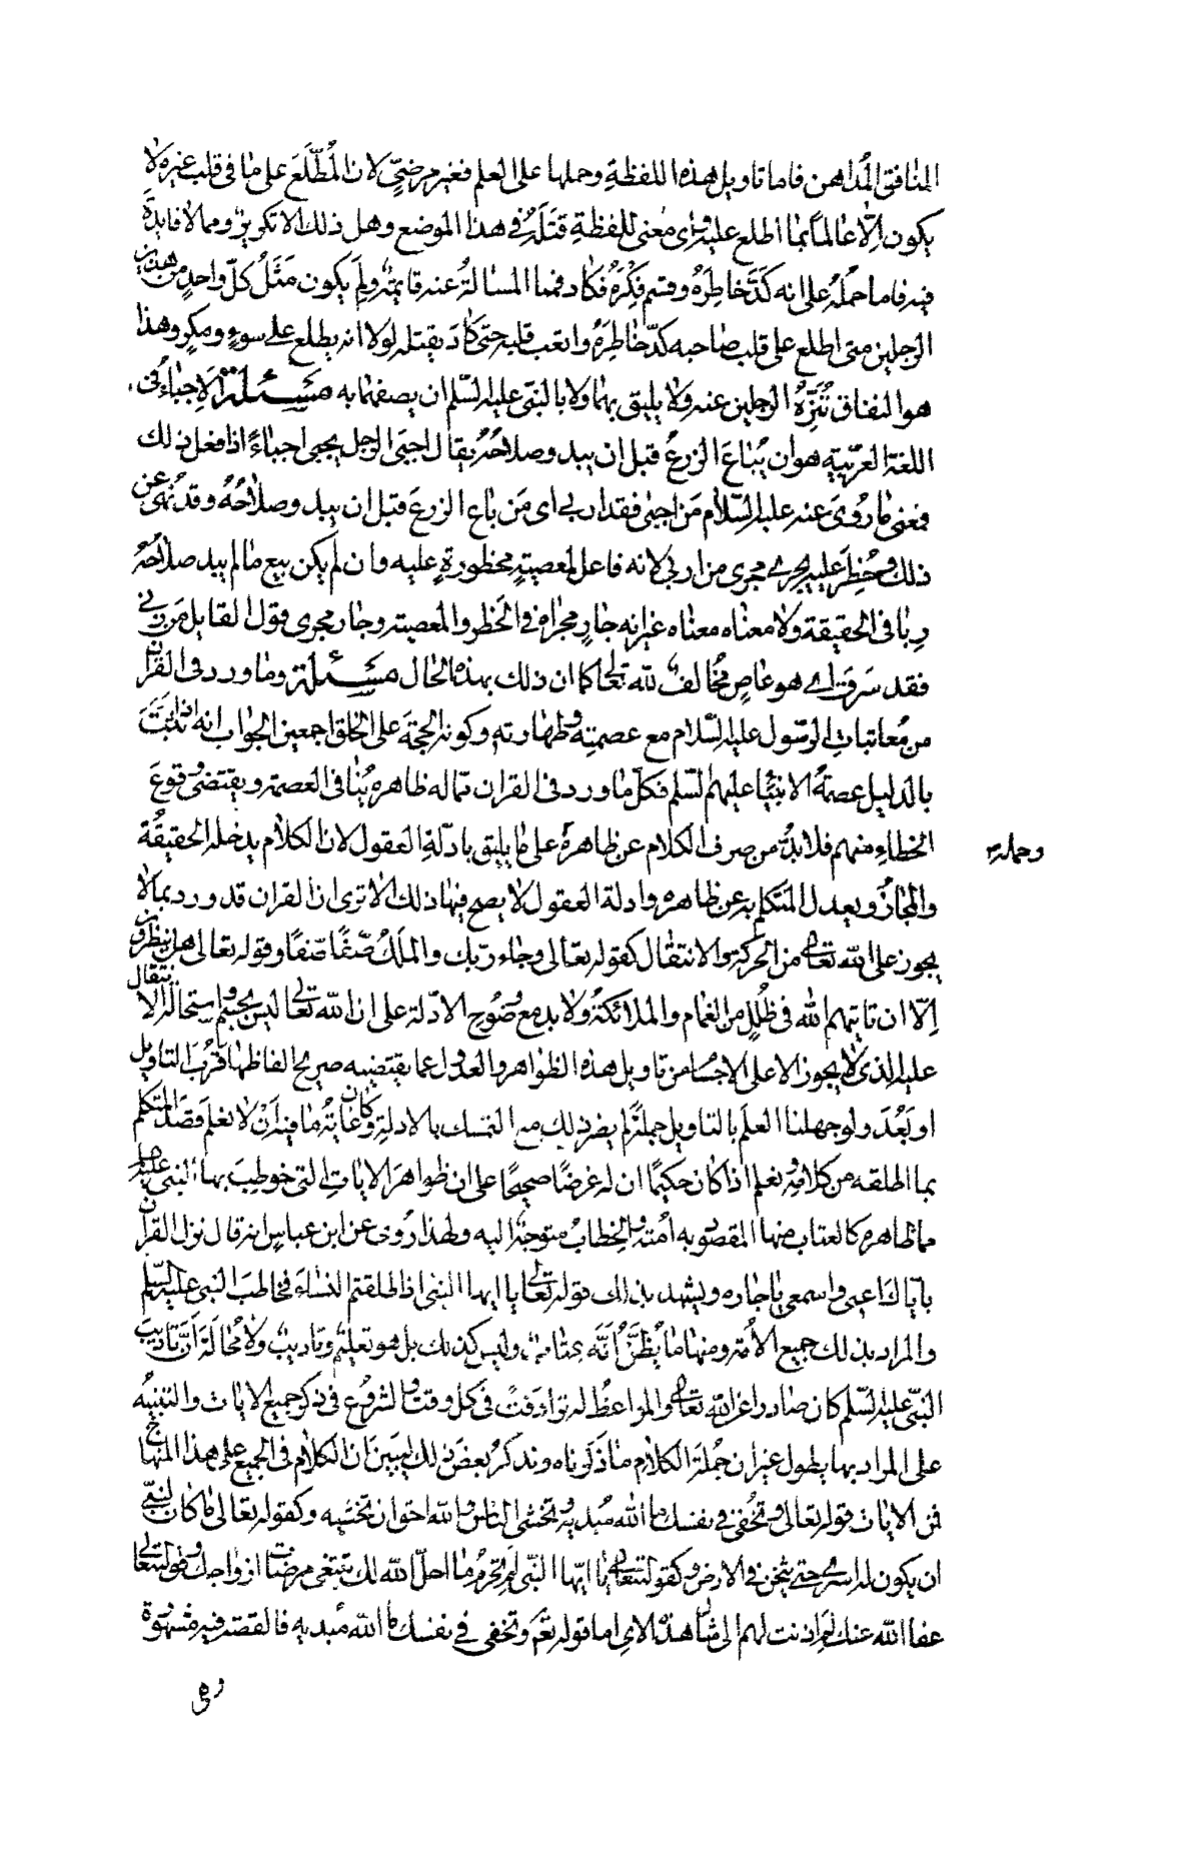 المنافق المداهن فاما تاويل هذه اللفظة وحملها على العلم فغير مرضيّ لان المُطَّلَعَ على ما فى قلب غيره لا
يكون اِلّا عالماً بما اطلع عليه واى معنى للفظةِ قَتَلَهُ فى هذا الموضع وهل ذلك الا تكرير ومما لا فايدةَ
فيه فاما حملُهُ على انه كَدَّ خاطِرَهُ وقسم فِكْرَهُ فكاد فما المسالةُ عنه قايمةٌ ولِمَ يكون مَثَلُ كلّ واحدٍ من هذين
الرجلين متى اطلع على قلب صاحبه كدّ خاطِرَهُ واتعب قلبه حتى كادَ يقتله لولا انه يطلع على سوءٍ ومكرٍ وهذا
هو النفاق نُنَزِّهُ الرجلين عنه ولا يليق بهما ولا بالنبى عليه السّلم ان يصفهما به مسئلة الاِجباءُ فى
اللغة العربية هو ان يُبَاعَ الزرعُ قبل ان يبدو صلاحُهُ يقال اجبَى الرجل يجبى اجباءً اذا فعل ذلك
فمعنى ما رُوىَ عنه عليه السّلام مَن اجبى فقد اربى اى مَن باع الزرعَ قبل ان يبدو صلاحُهُ وقد نُهى عن
ذلك وحُظِرَ عليه يجرى مجرى من اربى لانه فاعل لمعصيةٍ محظورةٍ عليه وان لم يكن بيع ما لم يبد صلاحُهُ
رِبا فى الحقيقة ولا معناه معناه غير انه جارٍ مجراه فى الحَظر والمعصية وجار مجرى قول القايل مَن زنى
فقد سَرَق اى هو عاصٍ مُخالفٌ لله تعالى كما ان ذلك بهذه الحال مسئلة وما ورد فى القران
من مُعاتباتِ الرّسول عليه السّلام مع عصمتِه وطهارته وكونه الحجّةَ على الخلق اجمعين الجواب انه اذا ثَبَتَ
بالدليل عصمةُ الانبيا عليهم السّلم فكلّ ما ورد فى القران مما له ظاهره يُنافى العصمة ويقتضى وقوعَ
الخطاءِ منهم فلا بدّ من صرف الكلام عن ظاهرهِ وحمله على ما يليق بادلّةِ العقول لان الكلام يدخله الحقيقةُ
والمجازُ ويعدل المتكلم به عن ظاهره وادلة العقول لا يصح فيها ذلك الا ترى ان القران قد ورد بما لا
يجوز على الله تعالى من الحركة والانتقال كقوله تعالى وجاء ربّك والملَكُ صَفًّا صَفًّا وقوله تعالى هل ينظرون
اِلّا ان تاتيهم الله فى ظُلَلٍ من الغمام والملائكة ولا بد مع وضُوحِ الادّلة على ان الله تعالى ليس بجسم واستحالة الانتقال
عليه الذى لا يجوز الا على الاجسام من تاويل هذه الظواهر والعدول عما يقتضيه صريح الفاظها قَرُبَ التاويل
او بَعُدَ ولو جهلنا العلم بالتاويل جملةً لم يضر ذلك مع التمسك بالادلة وكان غايةُ ما فيه اَنْ لا نعلم قصدَ المتكلم
بما اطلقه من كلامِهِ ونعلم اذا كان حكيمًا ان له غرضًا صحيحًا على ان ظواهرَ الاياتِ التى خوطِبَ بها النبى عليه السلم
مما ظاهره كالعتاب منها المقصود به اُمّته والخطابُ متوجّهٌ اليه ولهذا رُوى عن ابن عباس انه قال نزل القران
بايّاك اعنى واسمعى يا جاره ويشهد بذلك قوله تعالى يا ايها النبى اذا طلقتم النساءَ فخاطبَ النبى عليه السّلم
والمراد بذلك جميع الاُمّة ومنها ما يُظَنُّ اَنَّه عتابٌ وليس كذلك بل هو تعليمٌ وتاديبٌ ولا مُحالةَ اَنّ تاديبَ
النبّى عليه السّلم كان صادرا عن الله تعالى والمواعظُ له ترادَفتْ فى كل وقت والشروعُ فى ذكر جميع الايات والتنبيهُ
على المراد بها يطول غير ان جُملةَ الكلام ما ذكرناه ونذكرُ بعضَ ذلك ليبين ان الكلام فى الجميع على هذا المنهاج
فمن الايات قوله تعالى وتُخفى فى نفسك ما الله مُبديه وتخشى الناسَ والله احق ان تخشيه وكقوله تعالى ما كان لنبىّ
ان يكون له اسرى حتى يثخن فى الارض وكقوله تعالى يا ايّها النبّى لِمَ تحرّمُ ما احلّ الله لك تبتغى مرضات ازواجك وقوله تعالى
عفا الله عنك لِمَ اذنت لهم الى امثال هذه الاى اما قوله تعالى وتخفى فى نفسك ما الله مُبديه فالقصة فيه مشهورة
وهى